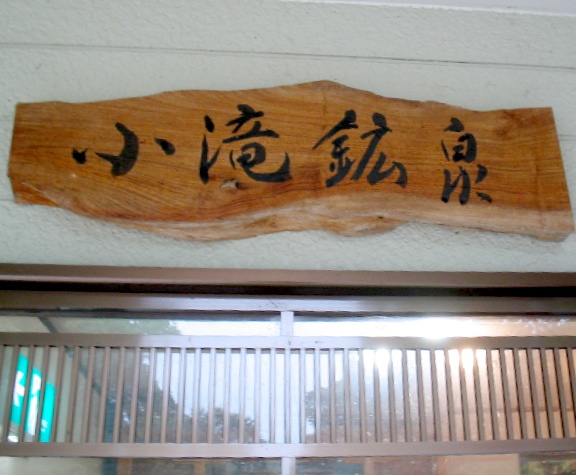 小滝鉱泉